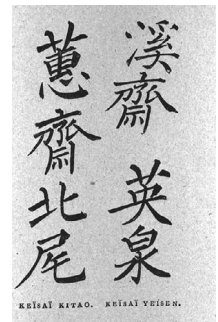 溪齋 英泉
蕙齋北尾
KEÏSAÏ KITAO. KEÏSAÏ YEÏSEN.